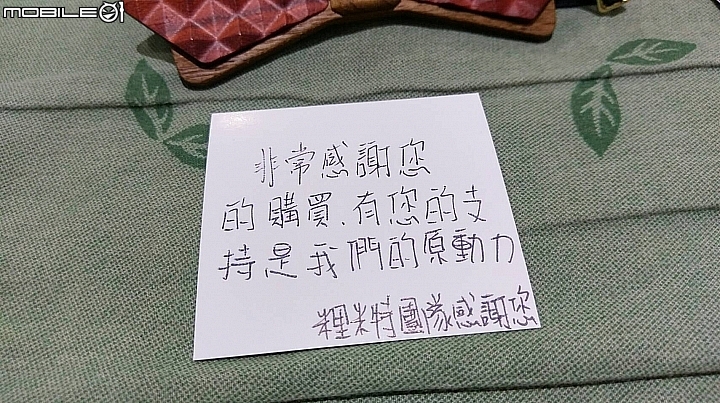 MOBILE01
非常感謝您
的購買、有您的支
持是我們的原動力
糧米特團隊感謝您